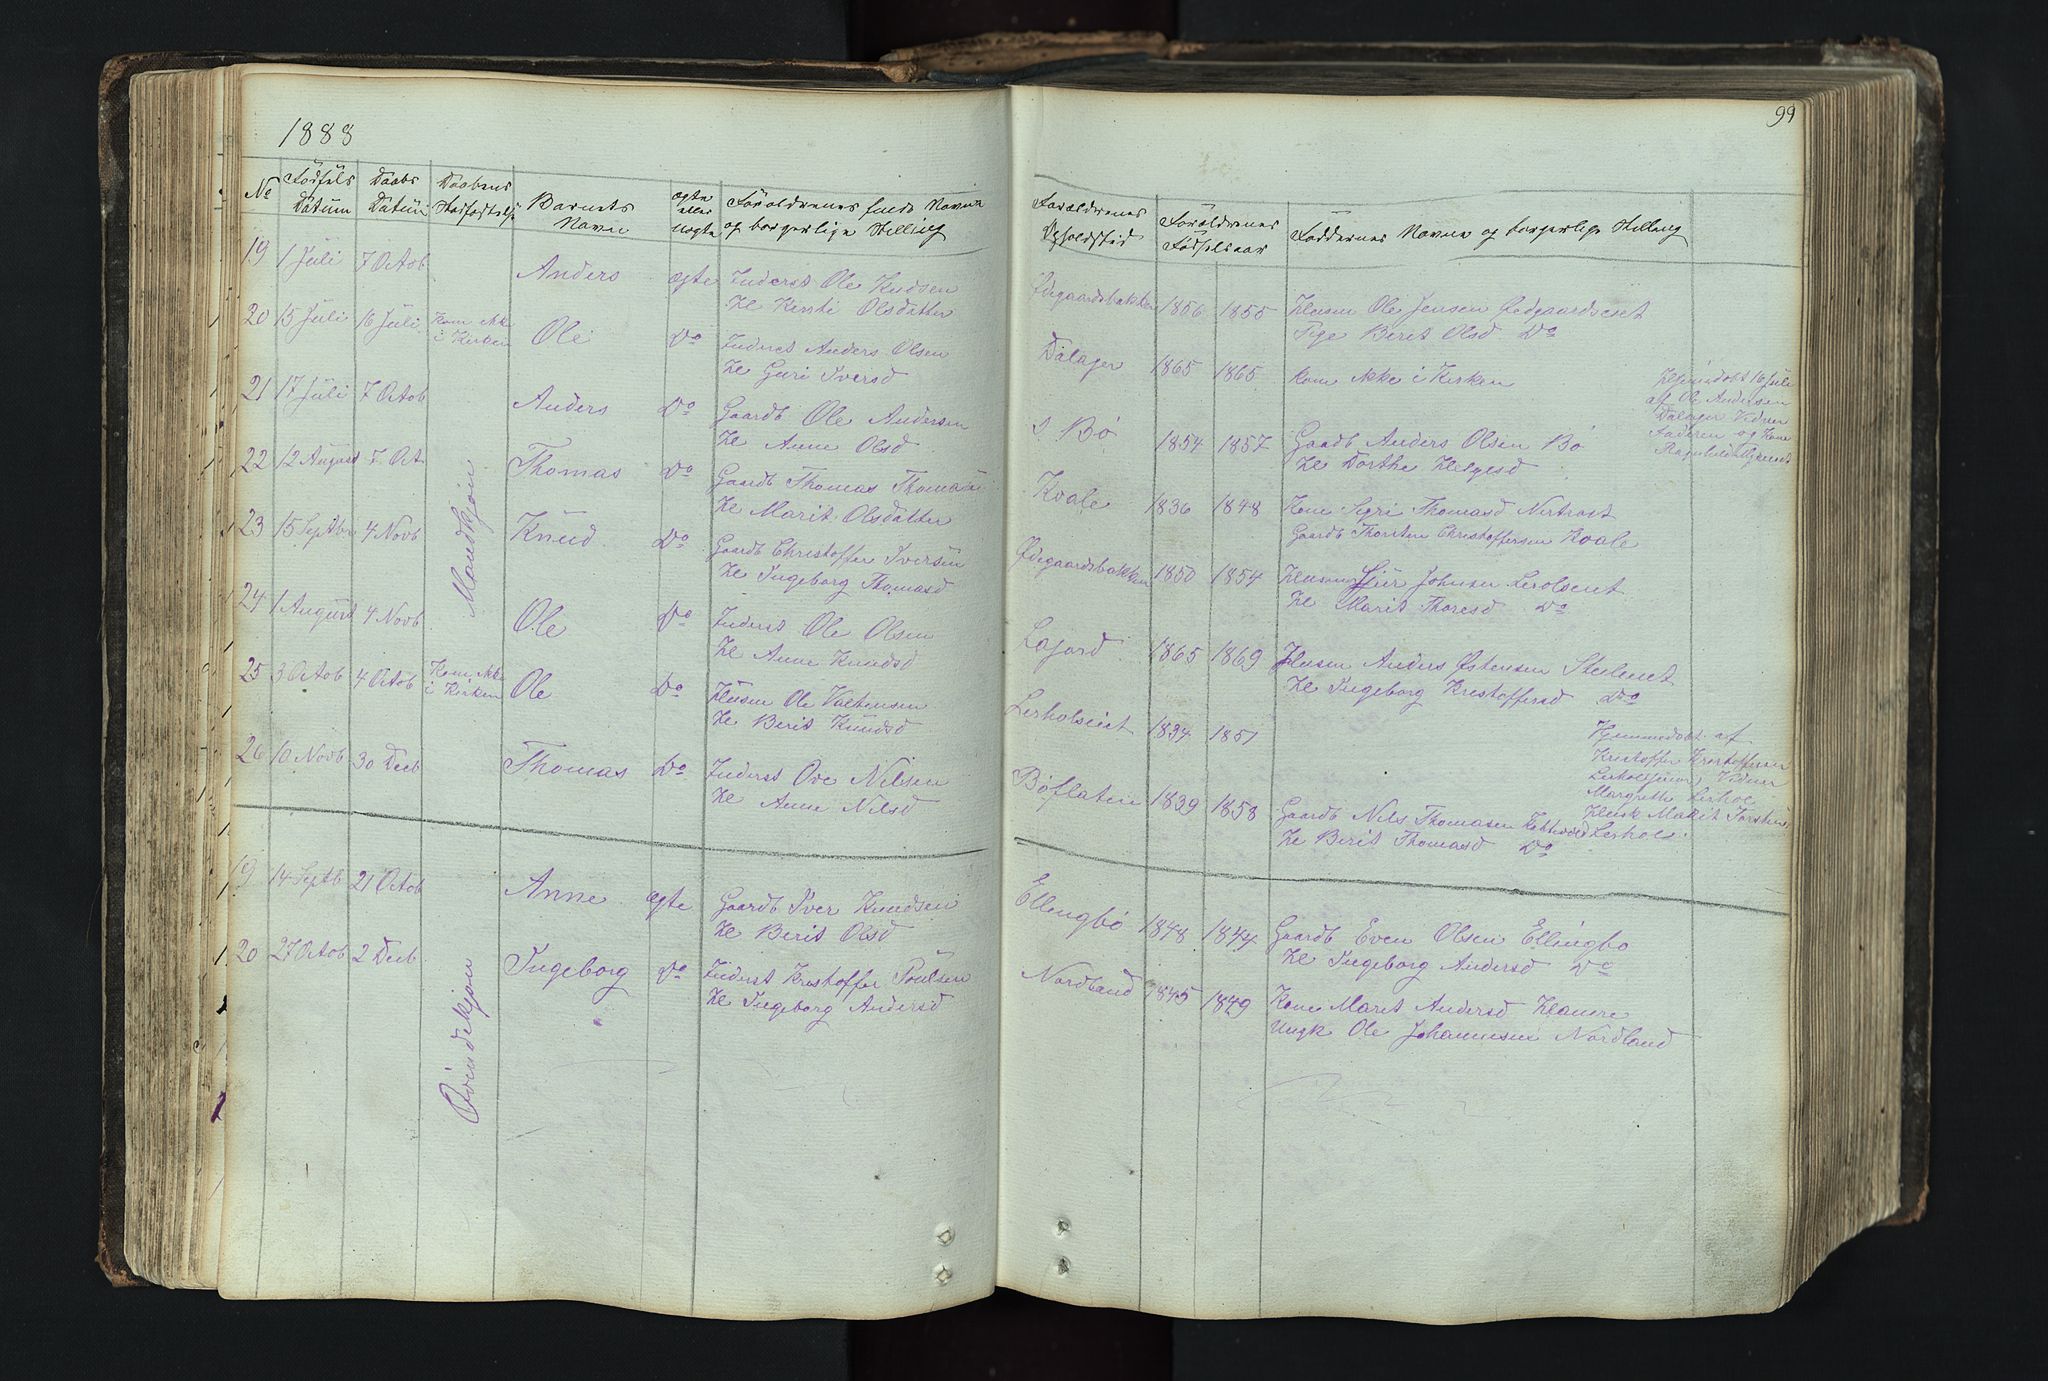 1888
No
Födsels
Datum
Daabs
Datum
Daabens
Stadfæstelse
Barnets
Navn
ægte
eller
uægte
Forældrenes fulde Navne
og borgerlige Stilling
19 1 Juli 7 Octob Anders ægte Inderst Ole Knudsen
He Kirsti Olsdatter
20 15 Juli 16 Juli Kom ikke
i Kirken Ole Do Inderst Anders Olsen
He Guri Iversd
21 17 Juli 7 Octob Anders Do Gaardb Ole Andersen
He Anne Olsd
22 12 August 7 Oct Thomas Do Gaardb Thomas Thomasen
He Marit Olsdatter
Mandkjøn
23 15 Septbr 4 Novb Knud Do Gaardb Christoffer Iversen
He Ingeborg Thomasd
24 1 August 4 Novb Ole Do Inderst Ole Olsen
He Anne Knudsd
25 3 Octob 4 Octob Kom ikke
i Kirken Ole Do Husm Ole Valtensen
He Berit Knudsd
26 10 Novb 30 Decb Thomas Do Inderst Ove Nilsen
He Anne Nilsd
19 14 Septb 21 Octob Anne ægte Gaardb Iver Knudsen
He Berit Olsd
20 27 Octob 2 Decb Ingeborg Do Inderst Kristoffer Poulsen
He Ingeborg Andersd
Qvindekjøn
99
Forældrenes
Opholdsted
Forældrenes
Fødselsaar
Faddernes Navne og borgerlige Stilling
Ødegaardsbakken 1856 1855 Husm Ole Jensen Ødegaardseiet
Pige Berit Olsd Do
Dalager 1865 1865 Kom ikke i Kirken
Hjemmedøbt 16 Juli
af Ole Andersen
Dalager Vidner
Faderen og Kone
Ragnhild
s. Bø 1854 1857 Gaardb Anders Olsen Bø
He Dorthe Helgesd
Kvale 1836 1848 Kone Sigri Thomasd Nertrost
Gaardb Thorsten Christoffersen Kvale
Ødegaardsbakken 1850 1854 Husm Johnsen Lerolseiet
He Marit Thoresd Do
Lajord 1865 1869 Husm Anders Østensen Steileiet
He Ingeborg Kristoffersd Do
Lerholseiet 1834 1851
Hjemmedøbt af
Kristoffer Kristoffersen
Vidner
Margrethe Lerhol
Husk Marit Torstens
Lerhol
Bøflaten 1839 1858 Gaardb Nils Thomasen
He Berit Thomasd Do
Ellingbø 1848 1844 Gaardb Even Olsen Ellingbø
He Ingeborg Andersd Do
Nordland 1845 1849 Kone Marit Andersd Haure
Ungk Ole Johannesen Nordland